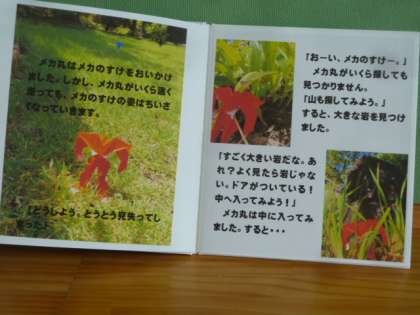 メカ丸はメカのすけをおいかけ
ました。しかし、メカ丸がいくら速く
走っても、メカのすけの姿はちいさ
くなっていきます。
「どうしよう。とうとう見失ってし
まった」
「おーい、メカのすけー。」
メカ丸がいくら探しても
見つかりません。
「山も探してみよう。」
すると、大きな岩を見つけ
ました。
「すごく大きい岩だな。あ
れ？よく見たら岩じゃな
い。ドアがついている！
中へ入ってみよう！」
メカ丸は中に入ってみ
ました。すると・・・